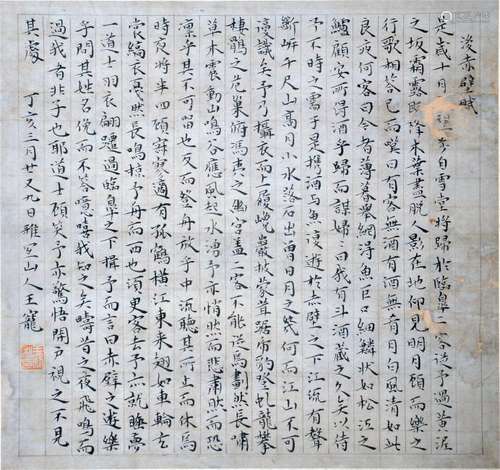 後赤壁賦
是歲十月望步自雪堂將歸於臨皋二客從予過黃泥
之坂霜露既降木葉盡脫人影在地仰見明月顧而樂之
行歌相答已而嘆曰有客無酒有酒無肴月白風清如此
良夜何客曰今者薄暮舉網得魚巨口細鱗狀如松江之
鱸顧安所得酒乎歸而謀婦婦曰我有斗酒藏之久矣以待
子不時之需于是攜酒與魚復遊於赤壁之下江流有聲
斷岸千尺山高月小水落石出曾日月之幾何而江山不可
復識矣予乃攝衣而上履巉巖披蒙茸踞虎豹登虬龍攀
棲鶻之危巢俯馮夷之幽宮蓋二客不能從焉劃然長嘯
草木震動山鳴谷應風起水涌予亦悄然而悲肅然而恐
凜乎其不可留也反而登舟放乎中流聽其所止而休焉
時夜將半四顧寂寥適有孤鶴橫江東來翅如車輪玄
裳縞衣戛然長鳴掠予舟而西也須臾客去予亦就睡夢
一道士羽衣翩躚過臨皋之下揖予而言曰赤壁之遊樂
乎問其姓名俛而不答噫嘻我知之矣疇昔之夜飛鳴而
過我者非子也耶道士顧笑予亦驚悟開戶視之不見
其處 丁亥三月廿又九日雅宜山人王寵